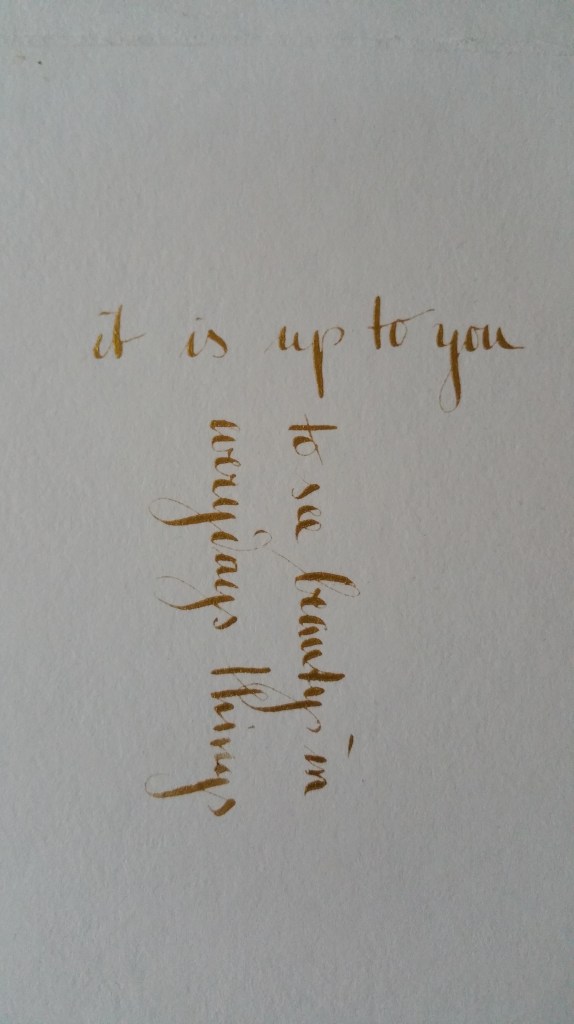 it is up to you
to see beauty in
everydays things